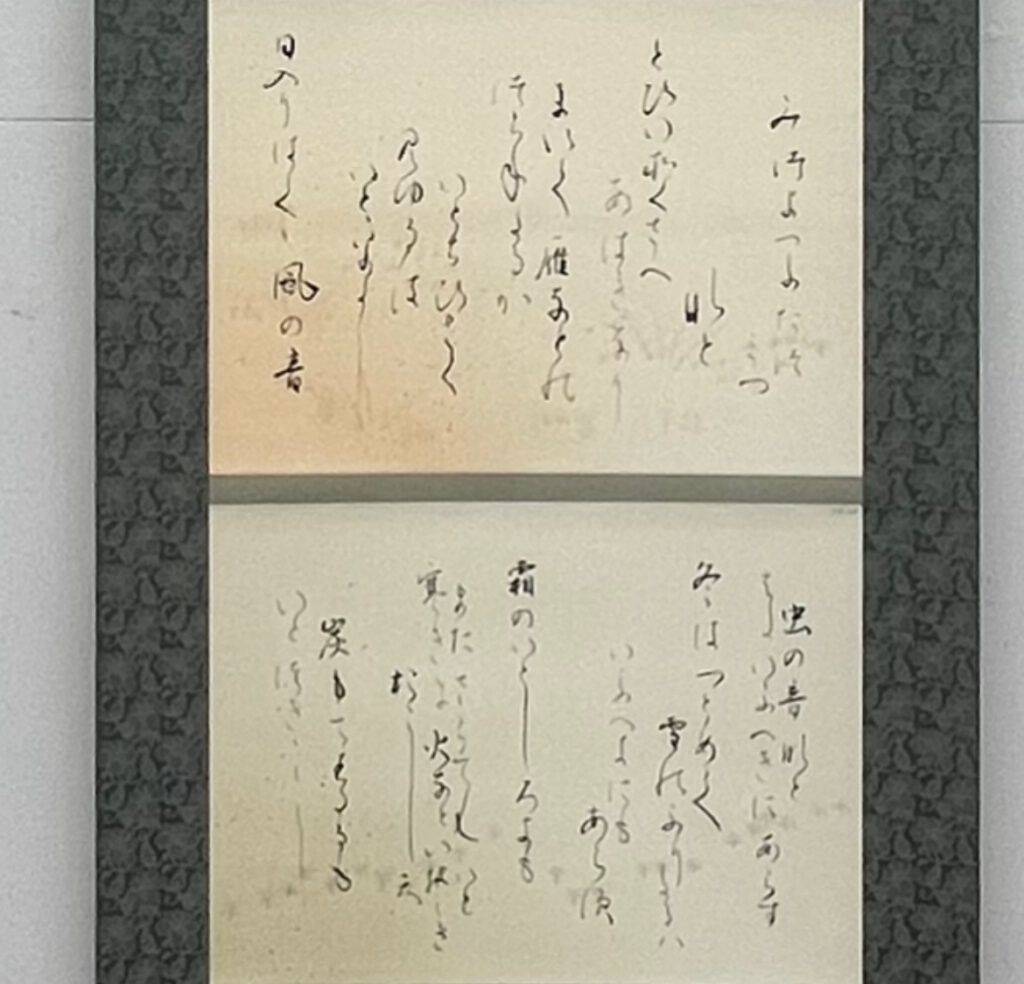 みつよつふたつ
みつ
なと
とひいそくさへ
あはれなり
まいて雁なとの
つらねたるか
いとちひさく
見ゆるは
いとをかし
日入りはてゝ風の音
虫の音なと
はたいふへきにあらす
冬はつとめて
雪のふりたるは
いふへきにも
あらす
霜のいとしろきも
またさらても いと
寒きに火なといそき
おこして
炭もてわたるも
いとつきつきし